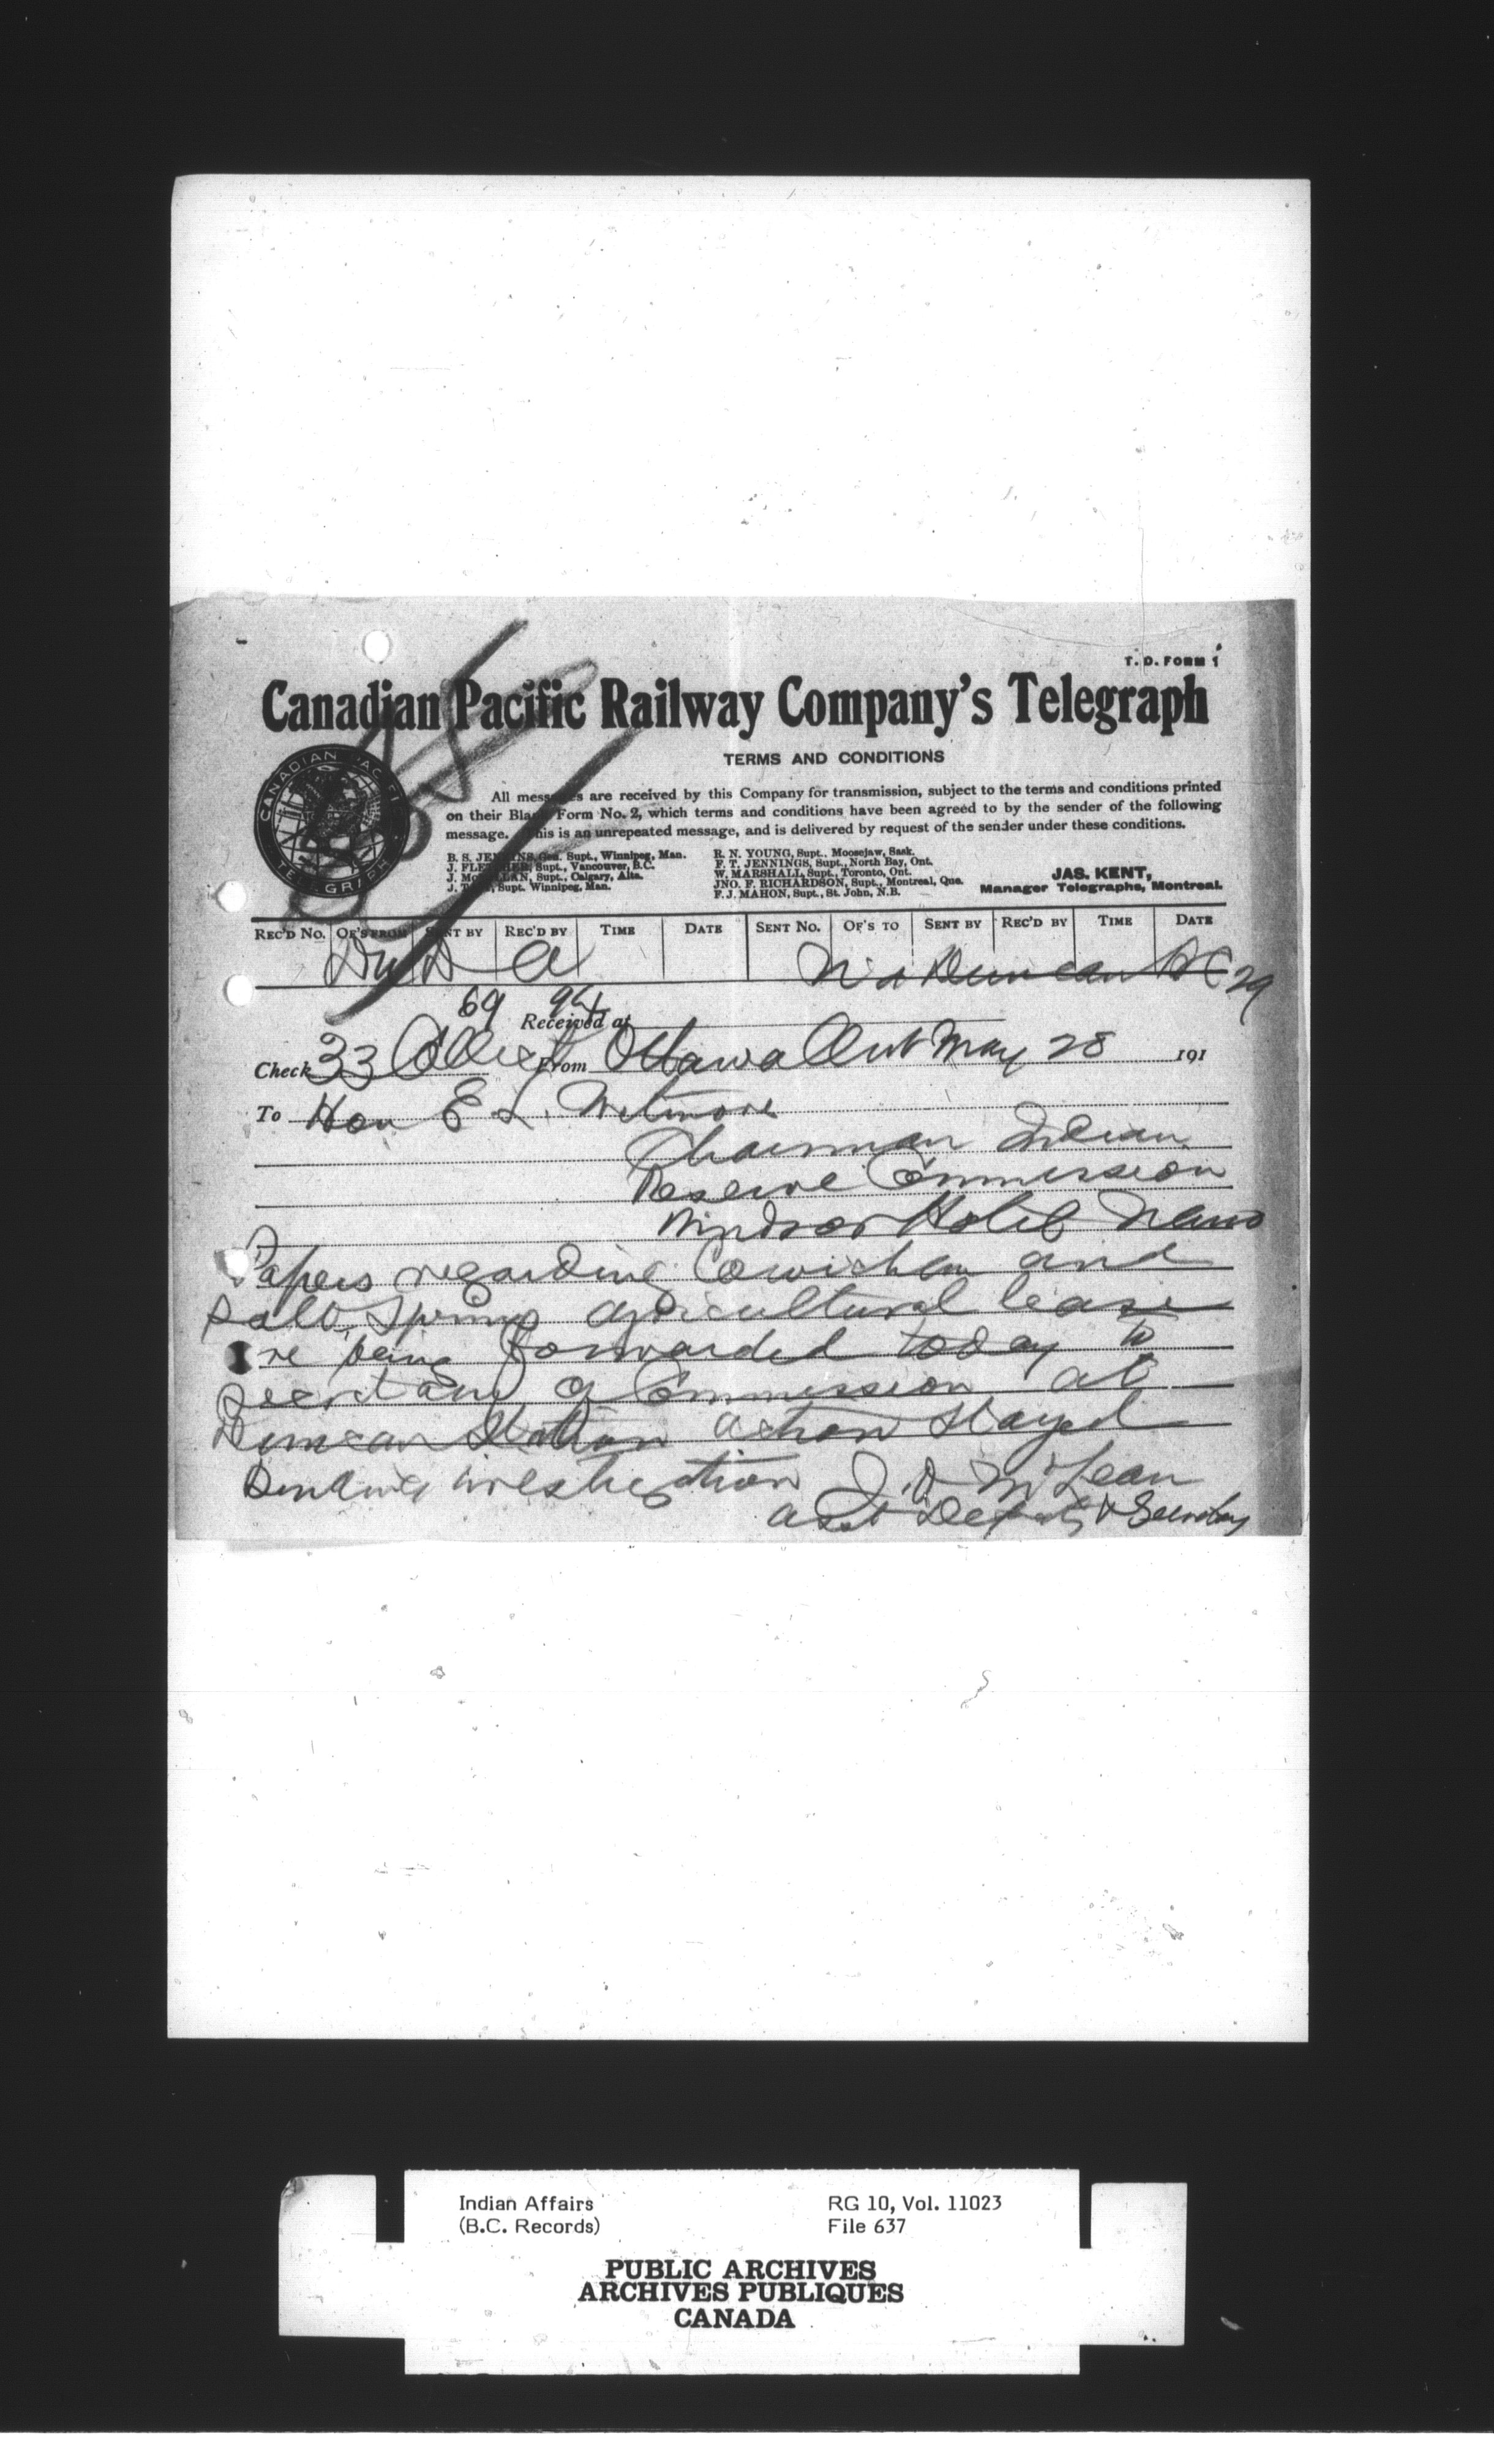 T. D. FORM 1
Canadian Pacific Railway Company's Telegraph
TERMS AND CONDITIONS
CANADIAN PACIFI
TELEGRAPH
All messages are received by this Company for transmission, subject to the terms and conditions printed
on their Blank Form No. 2, which terms and conditions have been agreed to by the sender of the following
message. This is an unrepeated message, and is delivered by request of the sender under these conditions.
B. S. JENKINS, Gen. Supt., Winnipeg, Man.
J. FLETCHER, Supt., Vancouver, B.C.
J. McMILLAN, Supt., Calgary, Alta.
J. Supt. Winnipeg, Man.
R. N. YOUNG, Supt., Moosejaw, Sask.
F. T. JENNINGS, Supt., North Bay, Ont.
W. MARSHALL, Supt., Toronto, Ont.
JNO. F. RICHARDSON, Supt., Montreal, Que.
F. J. MAHON, Supt., St. John, N.B.
JAS. KENT,
Manager Telegraphs, Montreal.
REC'D No. OF'S FROM SENT BY REC'D BY TIME DATE SENT No. OF'S TO SENT BY REC'D BY TIME DATE
Duncan BC 29
69
Received at
Check 33 Collect From Ottawa Ont May 28 191
To Hon E L. Wetmore
Chairman Indian
Reserve Commission
Windsor Hotel Nano
Papers regarding Cowichan and
Salt Spring agricultural lease
re being forwarded today to
Secretary of Commission at
Duncan Station action stayed
pending investigation J. D McLean
asst Deputy & Secretary
Indian Affairs
(B.C. Records)
RG 10, Vol. 11023
File 637
PUBLIC ARCHIVES
ARCHIVES PUBLIQUES
CANADA